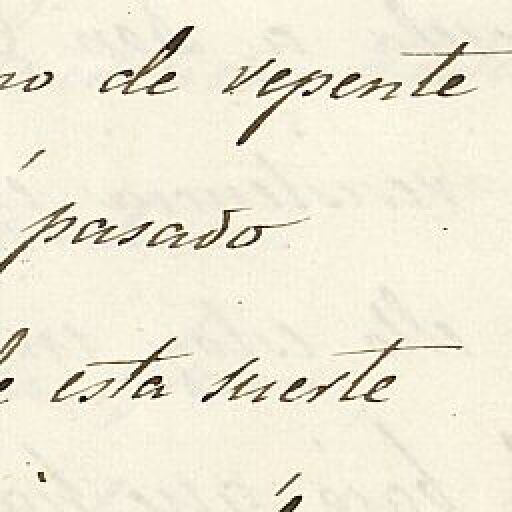 no de repente
pasado
de esta suerte